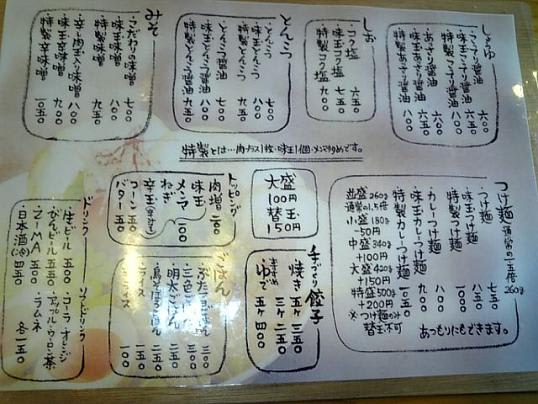 しょうゆ
・こってり醤油 六〇〇
・味玉こってり醤油
・特製こってり醤油
・あっさり醤油 六〇〇
・味玉あっさり醤油
・特製あっさり醤油
しお
・コク塩 六五〇
・味玉コク塩 七五〇
・特製コク塩 九〇〇
とんこつ
・とんこつ 七〇〇
・味玉とんこつ 八〇〇
・特製とんこつ 九五〇
・とんこつ醤油 七〇〇
・味玉とんこつ醤油 八〇〇
・特製とんこつ醤油
みそ
・こだわりの味噌 七〇〇
・味玉味噌 八〇〇
・特製味噌 九五〇
・辛し肉玉入り味噌 八〇〇
・味玉辛味噌 九〇〇
・特製辛味噌 一〇五〇
特製とは…肉プラス1枚・味玉1個・メンマ
つけ麺 通常の一.五倍 260g
・つけ麺 七五〇
・味玉つけ麺 八五〇
・特製つけ麺 一〇〇〇
・カレーつけ麺 八〇〇
・味玉カレーつけ麺 九〇〇
・特製カレーつけ麺 一〇五〇
並盛 260g
通常の1.5倍
小盛 180g
-50円
中盛 340g
+100円
大盛 420g
+150円
特盛 500g
+200円
※つけ麺のみ
替玉不可
あつもりにもできます。
大盛
100円
替玉
150円
手づくり餃子
焼き 五ヶ 三五〇
三ヶ 二五〇
ゆで 五ヶ 四〇〇
トッピング
肉増 二〇〇
味玉
メンマ 一〇〇
ねぎ
辛玉
コーン 五〇
バター 五〇
ごはん
三〇〇
三色ごはん 二五〇
明太ごはん 二五〇
一五〇
ライス 一五〇
一〇〇
ドリンク
生ビール 五〇〇
びんビール 五五〇
ZIMA 五五〇
日本酒(冷) 四五〇
ソフトドリンク
・コーラ・オレンジ
・アップル・ウーロン茶
・ラムネ
各一五〇